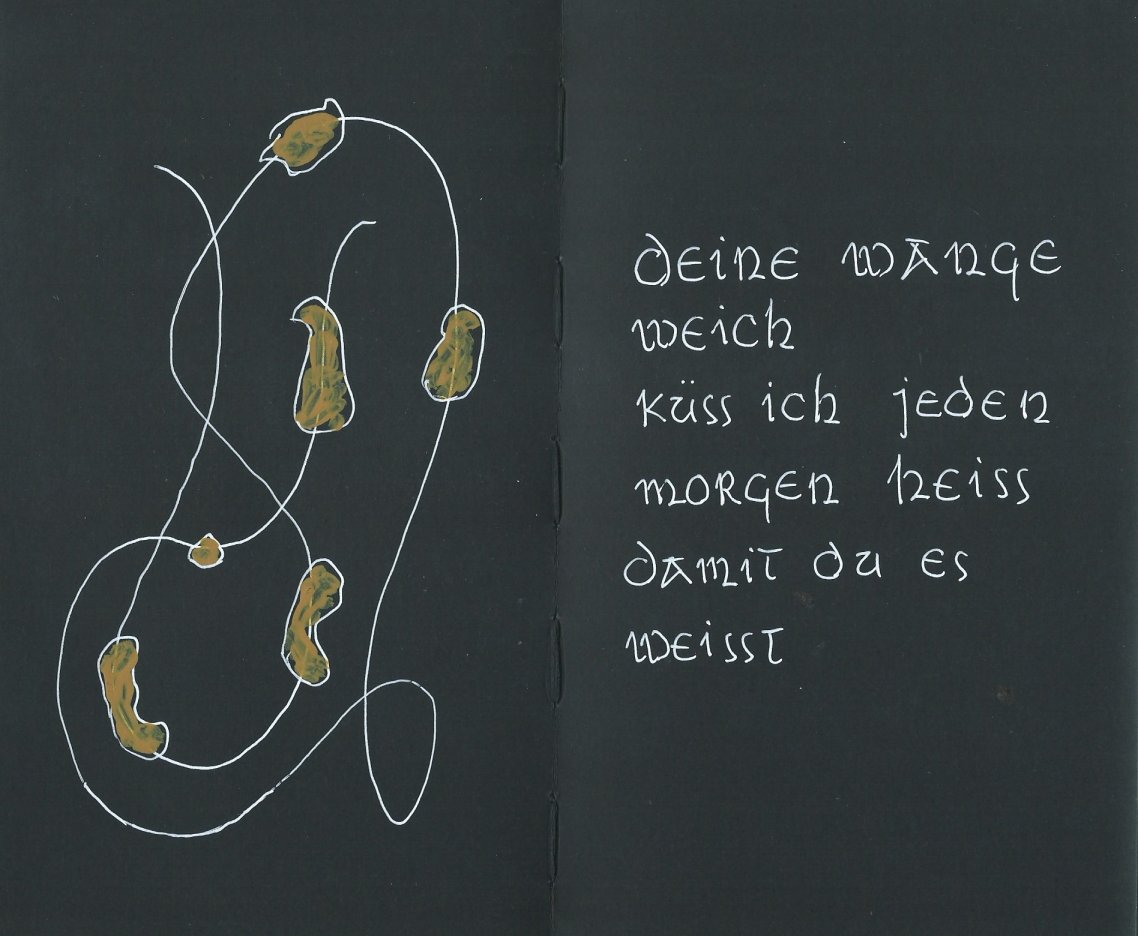 deine wange
weich
küss ich jeden
morgen heiss
damit du es
weisst